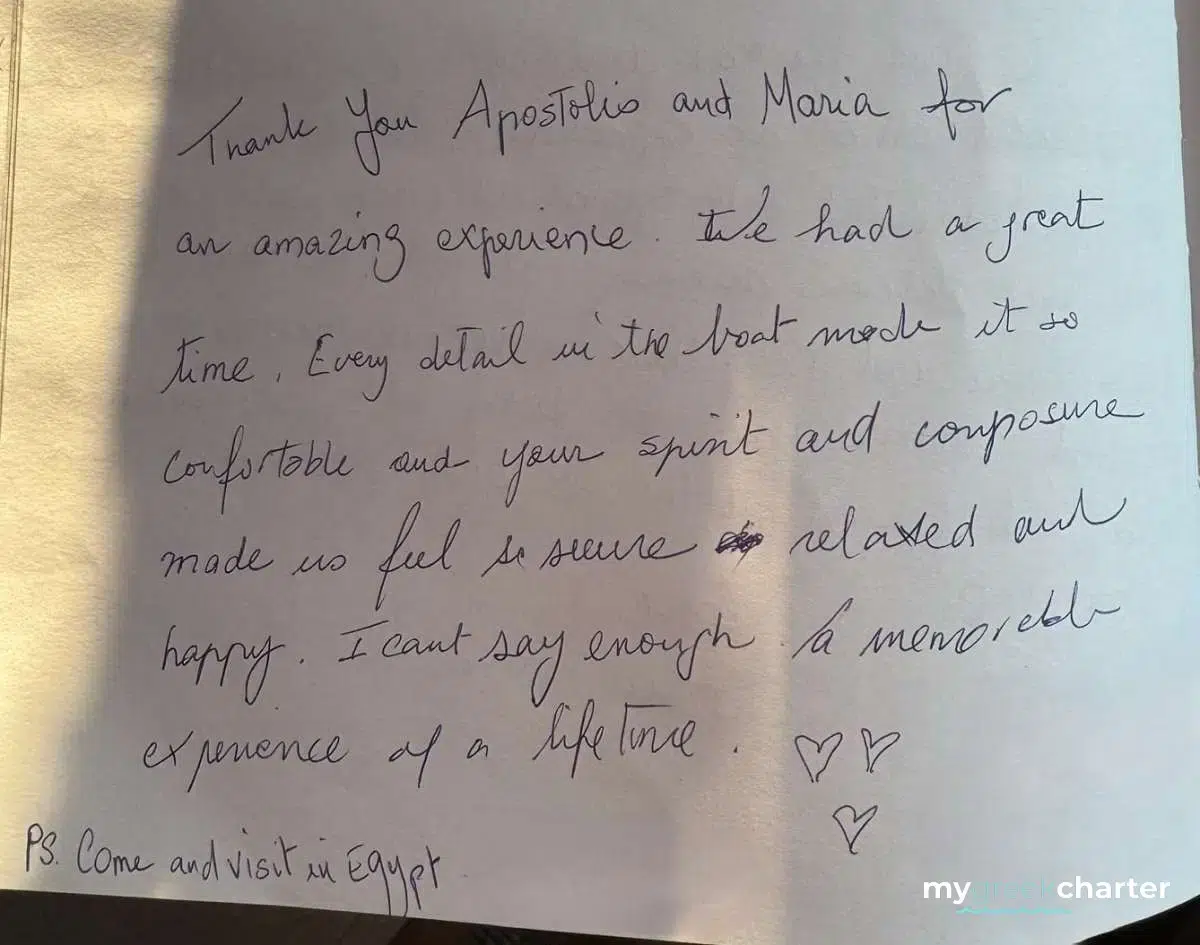 Thank You Apostolis and Maria for
an amazing experience. We had a great
time. Every detail in the boat made it so
confortable and your spirit and composure
made us feel so secure relaxed and
happy. I cant say enough. A memorable
experience of a lifetime.
PS. Come and visit in Egypt
mygreekcharter